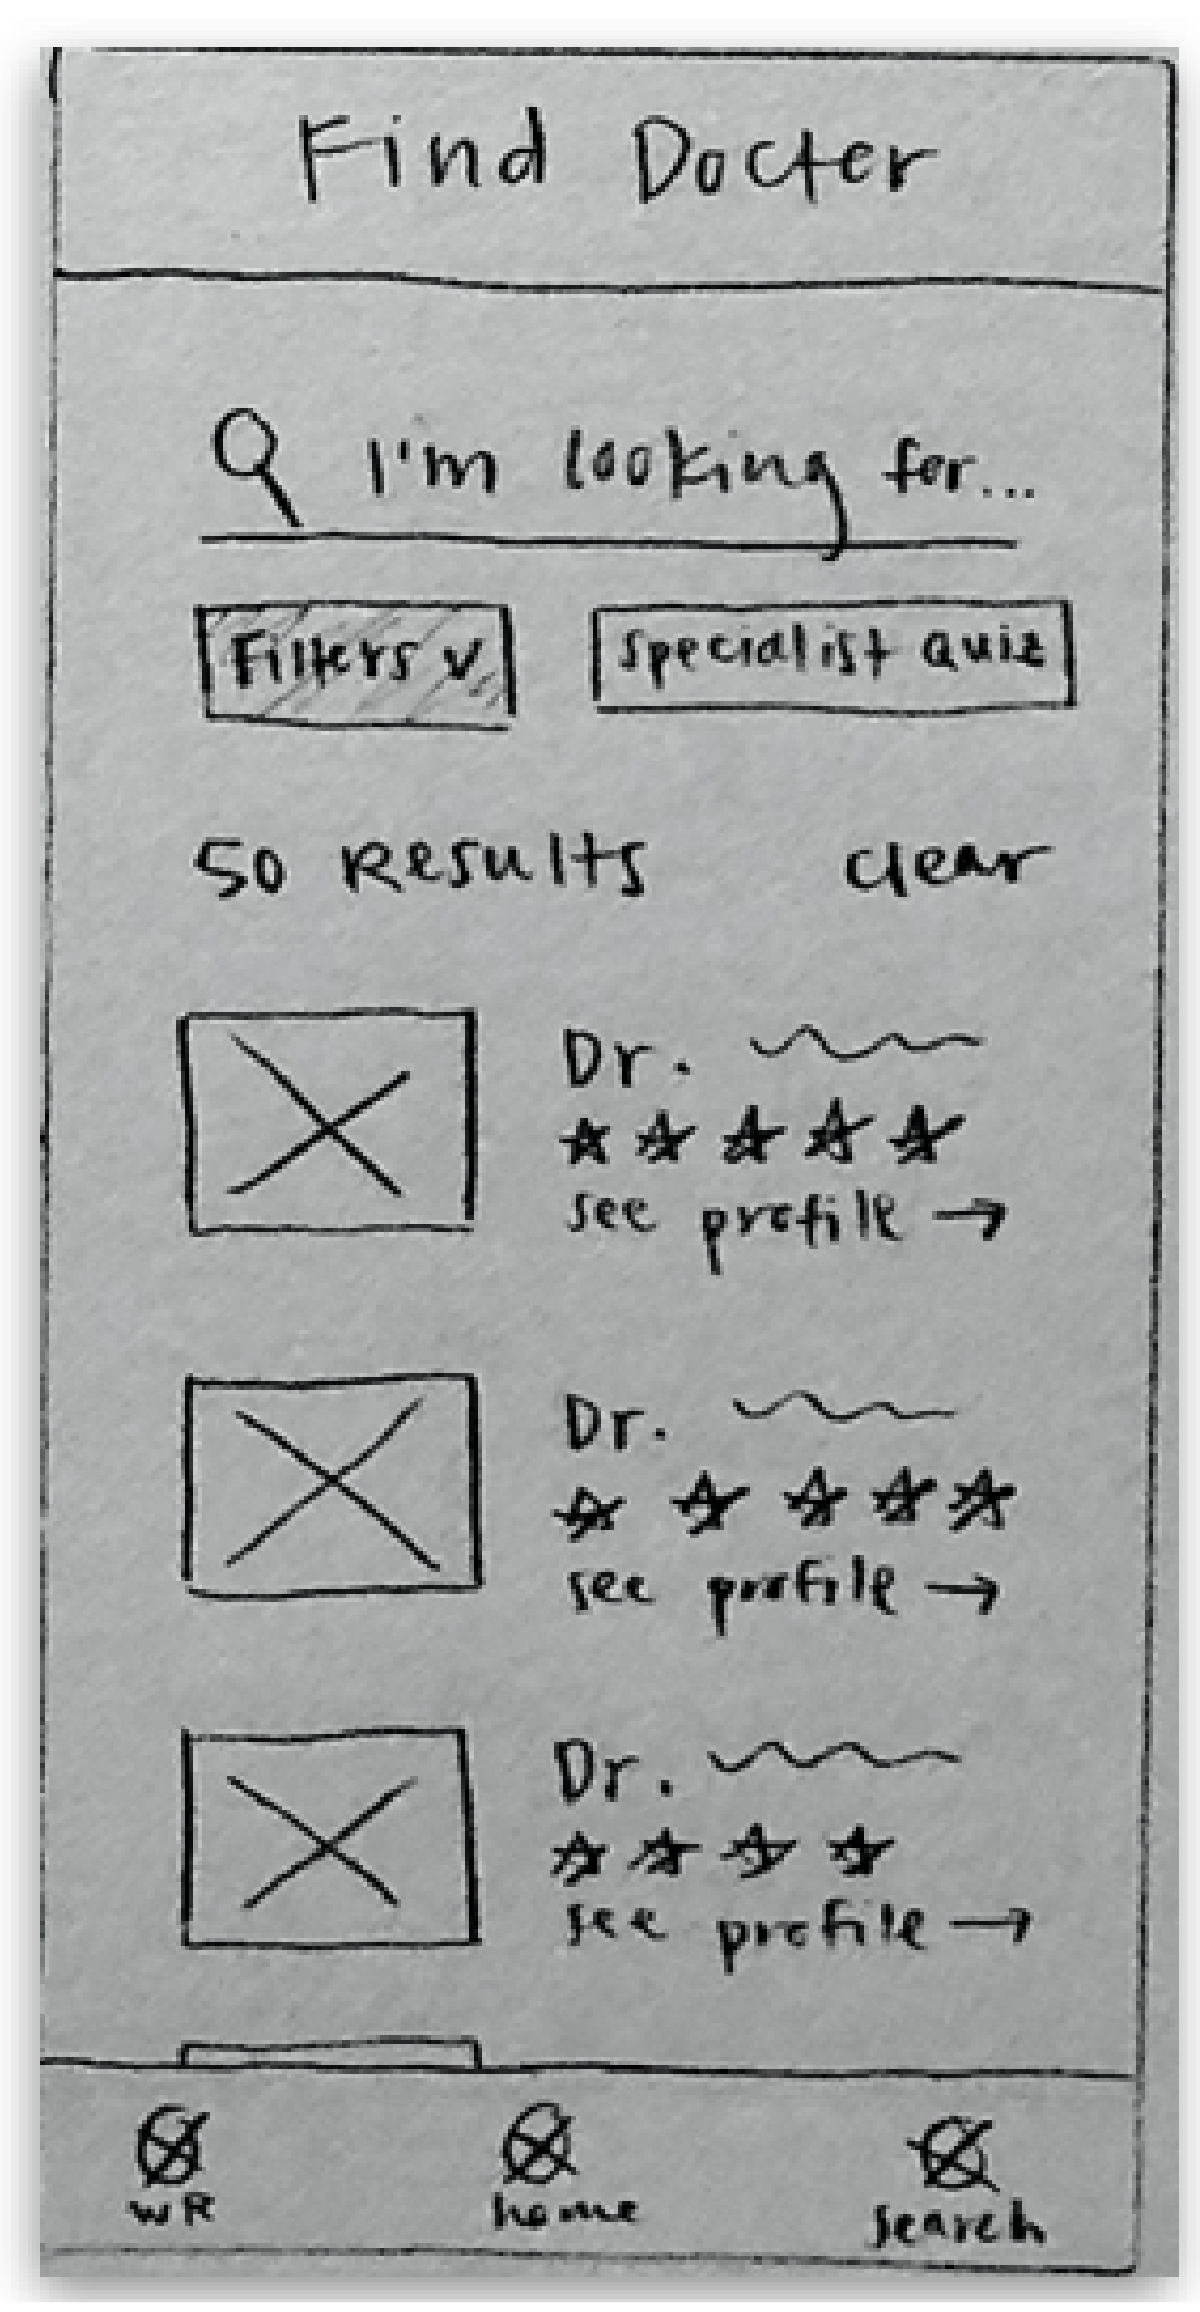 Find Docter
I'm looking for...
Filters Specialist Quiz
50 Results clear
Dr.
see profile →
Dr.
see profile →
Dr.
see profile →
WR home search